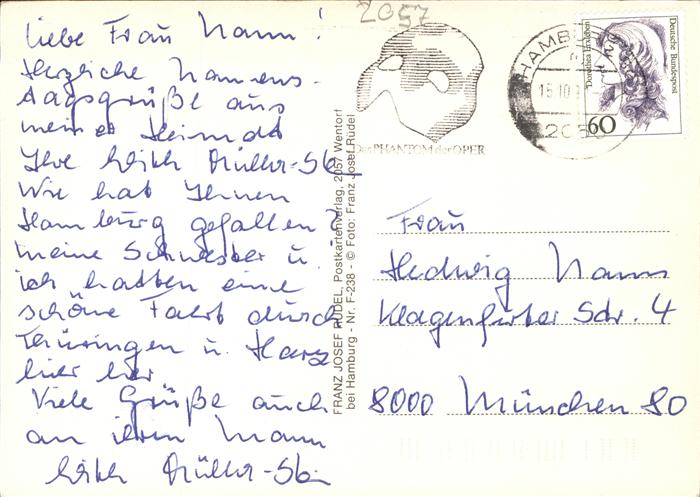 Liebe Frau Namm!
Herzliche Namens-
tagsgrüße aus
meiner Heimat
Ihre Müller-
Wie hat Ihnen
Hamburg gefallen?
Meine Schwester u.
ich hatten eine
schöne Fahrt durch
Thüringen u. Harz
hier her
Viele Grüße auch
an ihren Mann
Müller-
FRANZ JOSEF RÜDEL, Postkartenverlag, 2057 Wentorf
bei Hamburg - Nr. F-238 - © Foto: Franz Josef Rüdel
2057
Das PHANTOM der OPER
HAMBURG
Dorothea Erxleben
Deutsche Bundespost
60
Frau
Hedwig Namm
Klagenfurter Str. 4
8000 München 80